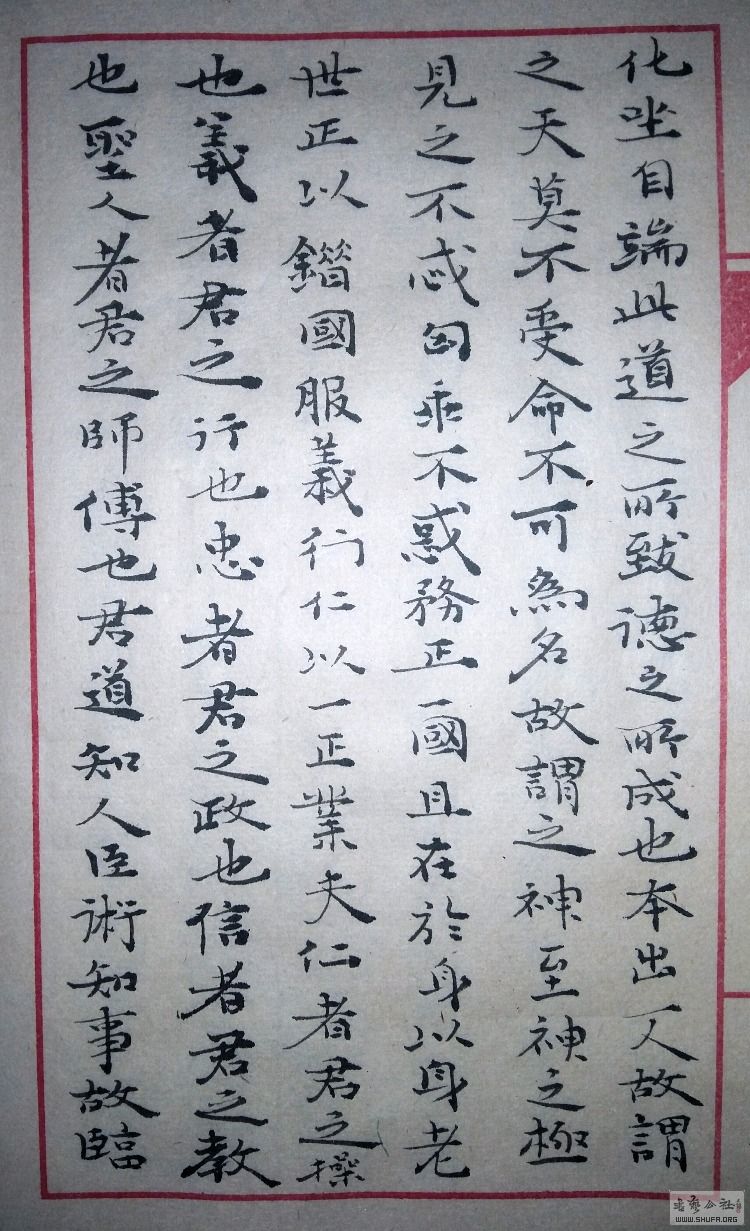 化坐自端此道之所致德之所成也本出一人故謂
之天莫不受命不可為名故謂之神至神之極
見之不忒匈乖不惑務正一國且在於身以身老
世正以錯國服義行仁以一正業夫仁者君之操
也義者君之行也忠者君之政也信者君之教
也聖人者君之師傅也君道知人臣術知事故臨
书艺公社
WWW.SHUFR.ORG